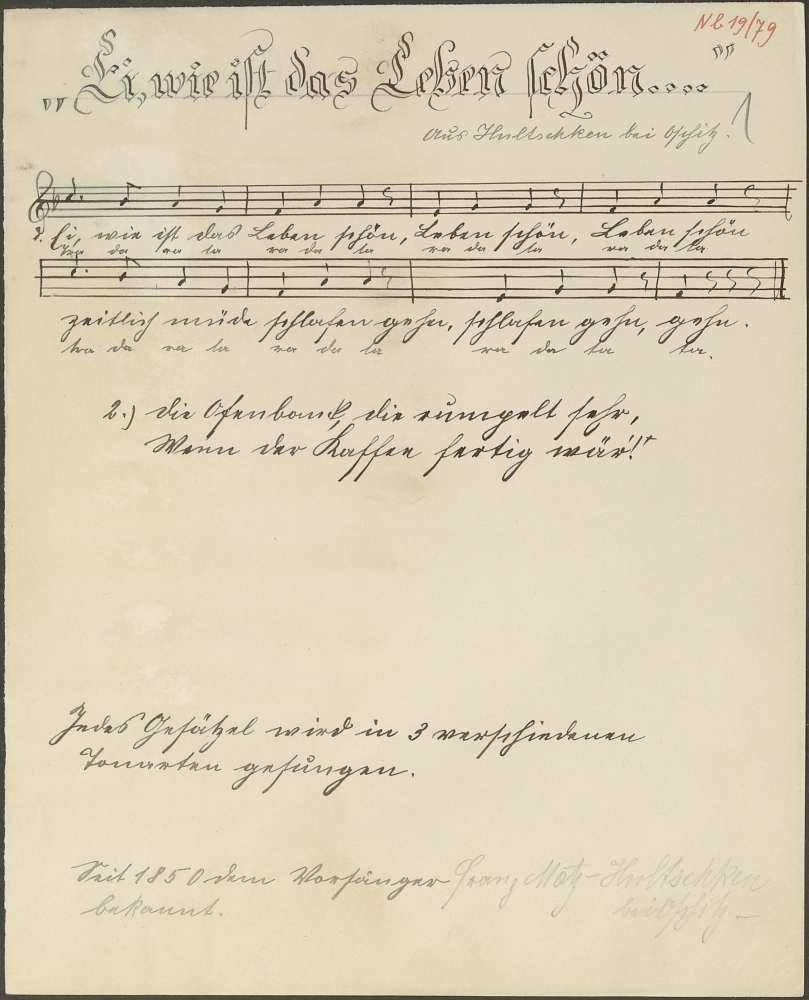 Nb 19/79
„Ei, wie ist das Leben schön...."
Aus Hultschken bei Oschitz.
1. Ei, wie ist das Leben schön, Leben schön, Leben schön
tra da ra la ra da la ra da la ra da la
zeitlich müde schlafen gehn, schlafen gehn, gehn.
tra da ra la ra da la ra da la la.
2.) Die Ofenbank, die rumpelt sehr,
Wenn der Kaffee fertig wär'!"
Jedes Gesätzel wird in 3 verschiedenen
Tonarten gesungen.
Seit 1850 dem Vorsänger Franz Motz-Hultschken
bekannt. bei Oschitz –